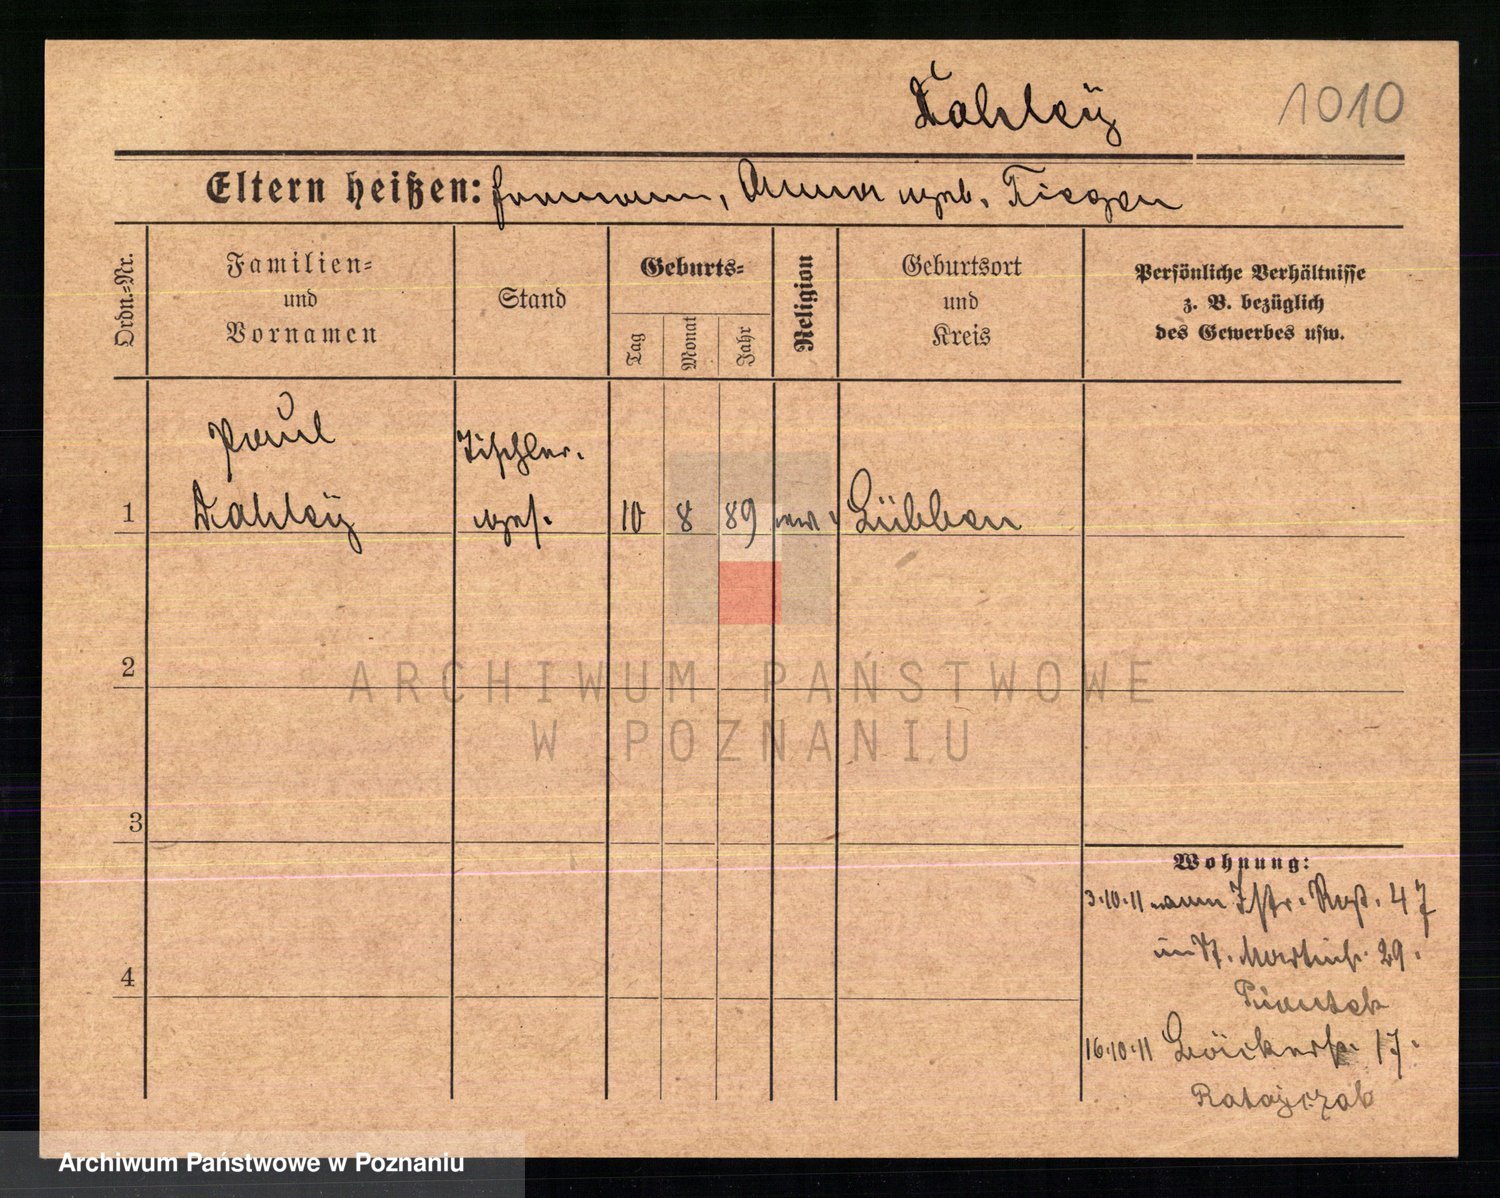 Dahleÿ 1010
Eltern heißen: Hermann, Anna geb. Tiegen
Ordn.=Nr.
Familien=
und
Vornamen
Stand
Geburts=
Tag
Monat
Jahr
Religion
Geburtsort
und
Kreis
Persönliche Verhältnisse
z. B. bezüglich
des Gewerbes usw.
Paul
Tischler.
1 Dahleÿ ges. 10 8 89 Lübben
2
3
4
Wohnung:
3.10.11 47
St. Martinstr. 29.
Piontek
16.10.11 Bäckerstr. 17.
Ratajczak
ARCHIWUM PAŃSTWOWE
W POZNANIU
Archiwum Państwowe w Poznaniu